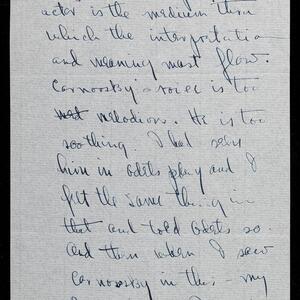 actor is the medium thru
which the interpretation
and meaning must flow.
Carnovsky's voice is too
melodious. He is too
soothing. I had seen
him in Odets play and I
felt the same thing in
that and told Odets so.
And then when I saw
Carnovsky in this - my